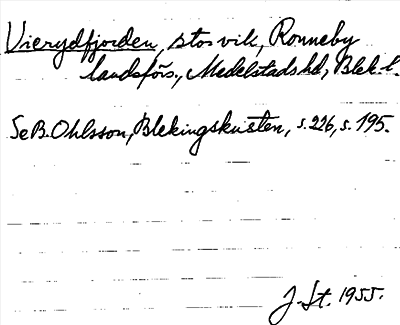 Vierydfjorden, stor vik, Ronneby
landsförs., Medelstads hd, Blek. l.
Se B. Ohlsson, Blekingskusten, s. 226, s. 195.
J. St. 1955.